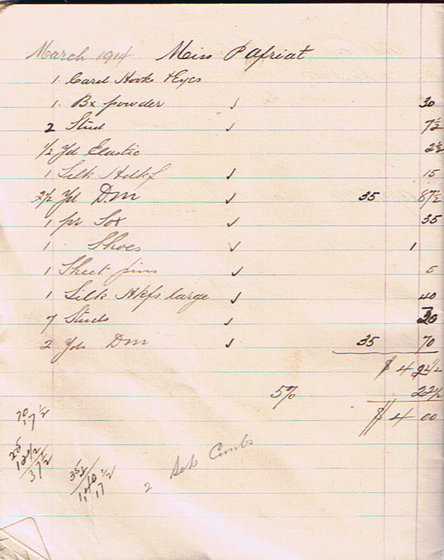 March 1914 Miss Pafriat
1. Card Hooks & Eyes
1. Bx powder ✓ 30
2 Stud ✓ 7½
½ Yd Elastic 2½
1 Silk Hdkf ✓ 15
2½ Yd D.M ✓ 35 87½
1 pr Sox ✓ 35
1 Shoes ✓ 1
1 Sheet pins ✓ 5
1 Silk Hkfs large ✓ 40
7 Studs ✓
2 Yds DM ✓ 35 70
$ 4
5% 
$ 4 00
70
17½
25
12½
37½
35
17
2 Combs